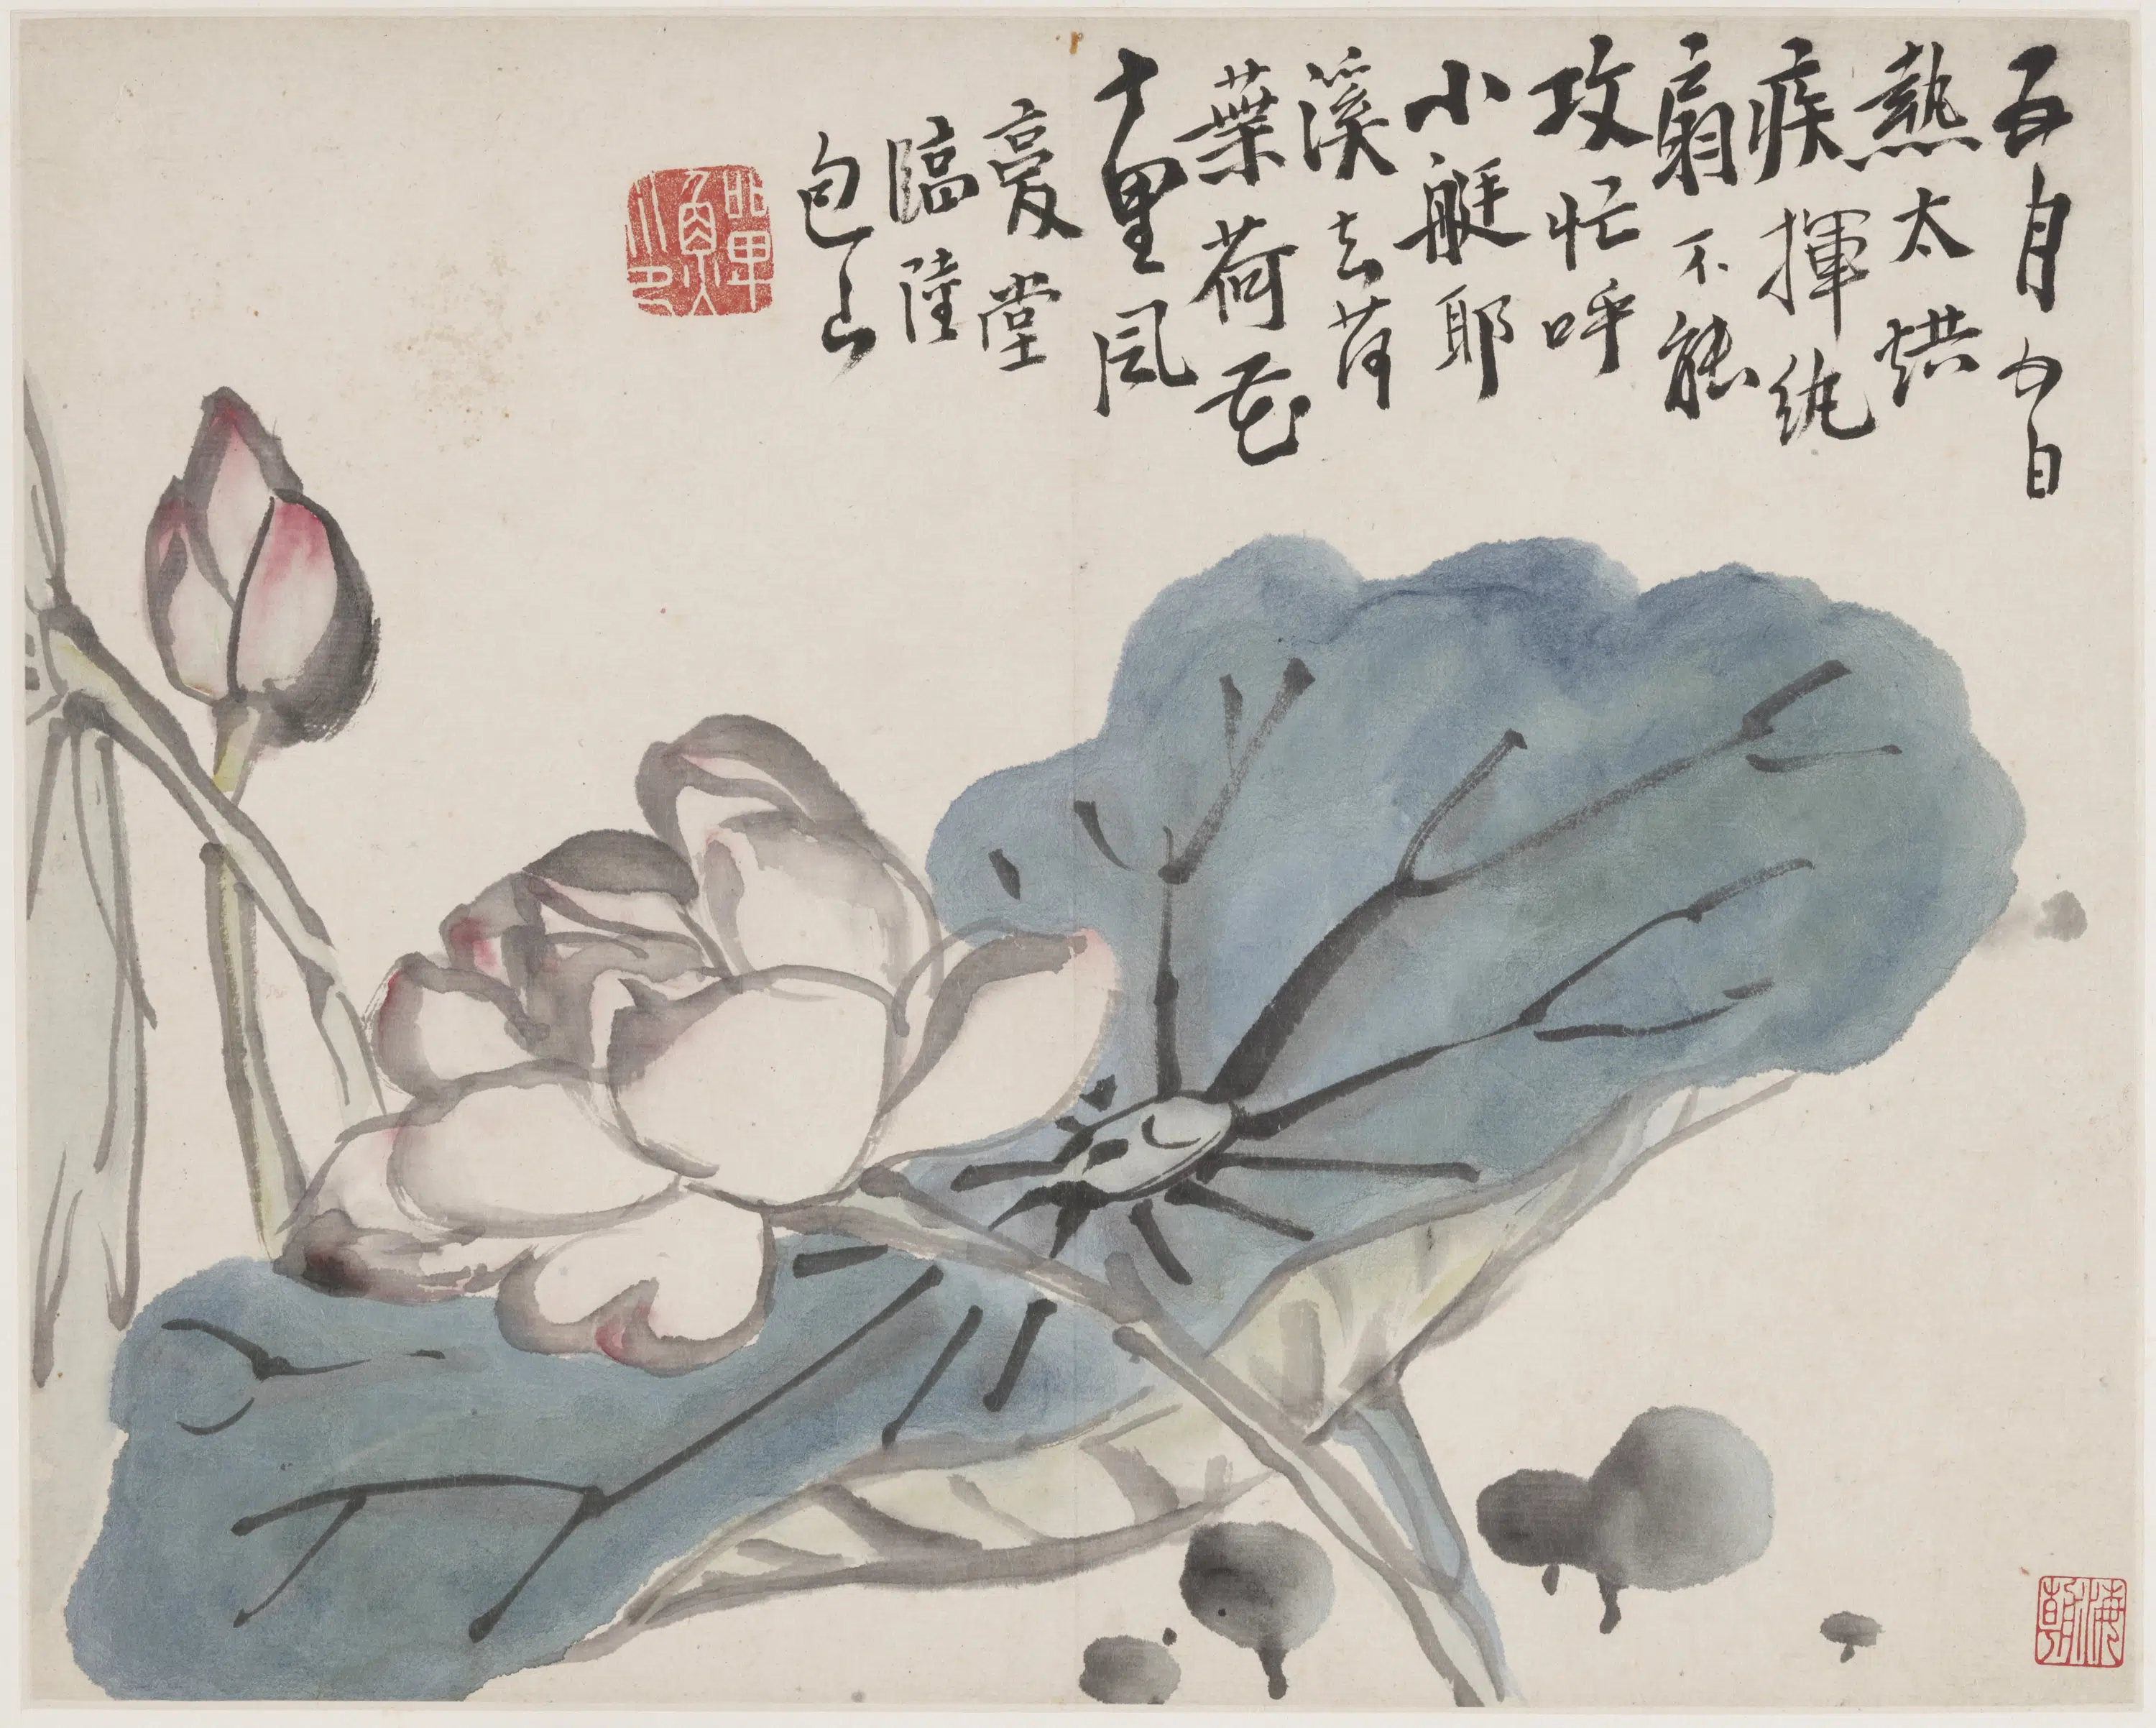 五月五日
熱太烘
疾揮紈
扇不能
攻忙呼
小艇耶
溪去荷
葉荷花
十里風
堂
臨陸
包山